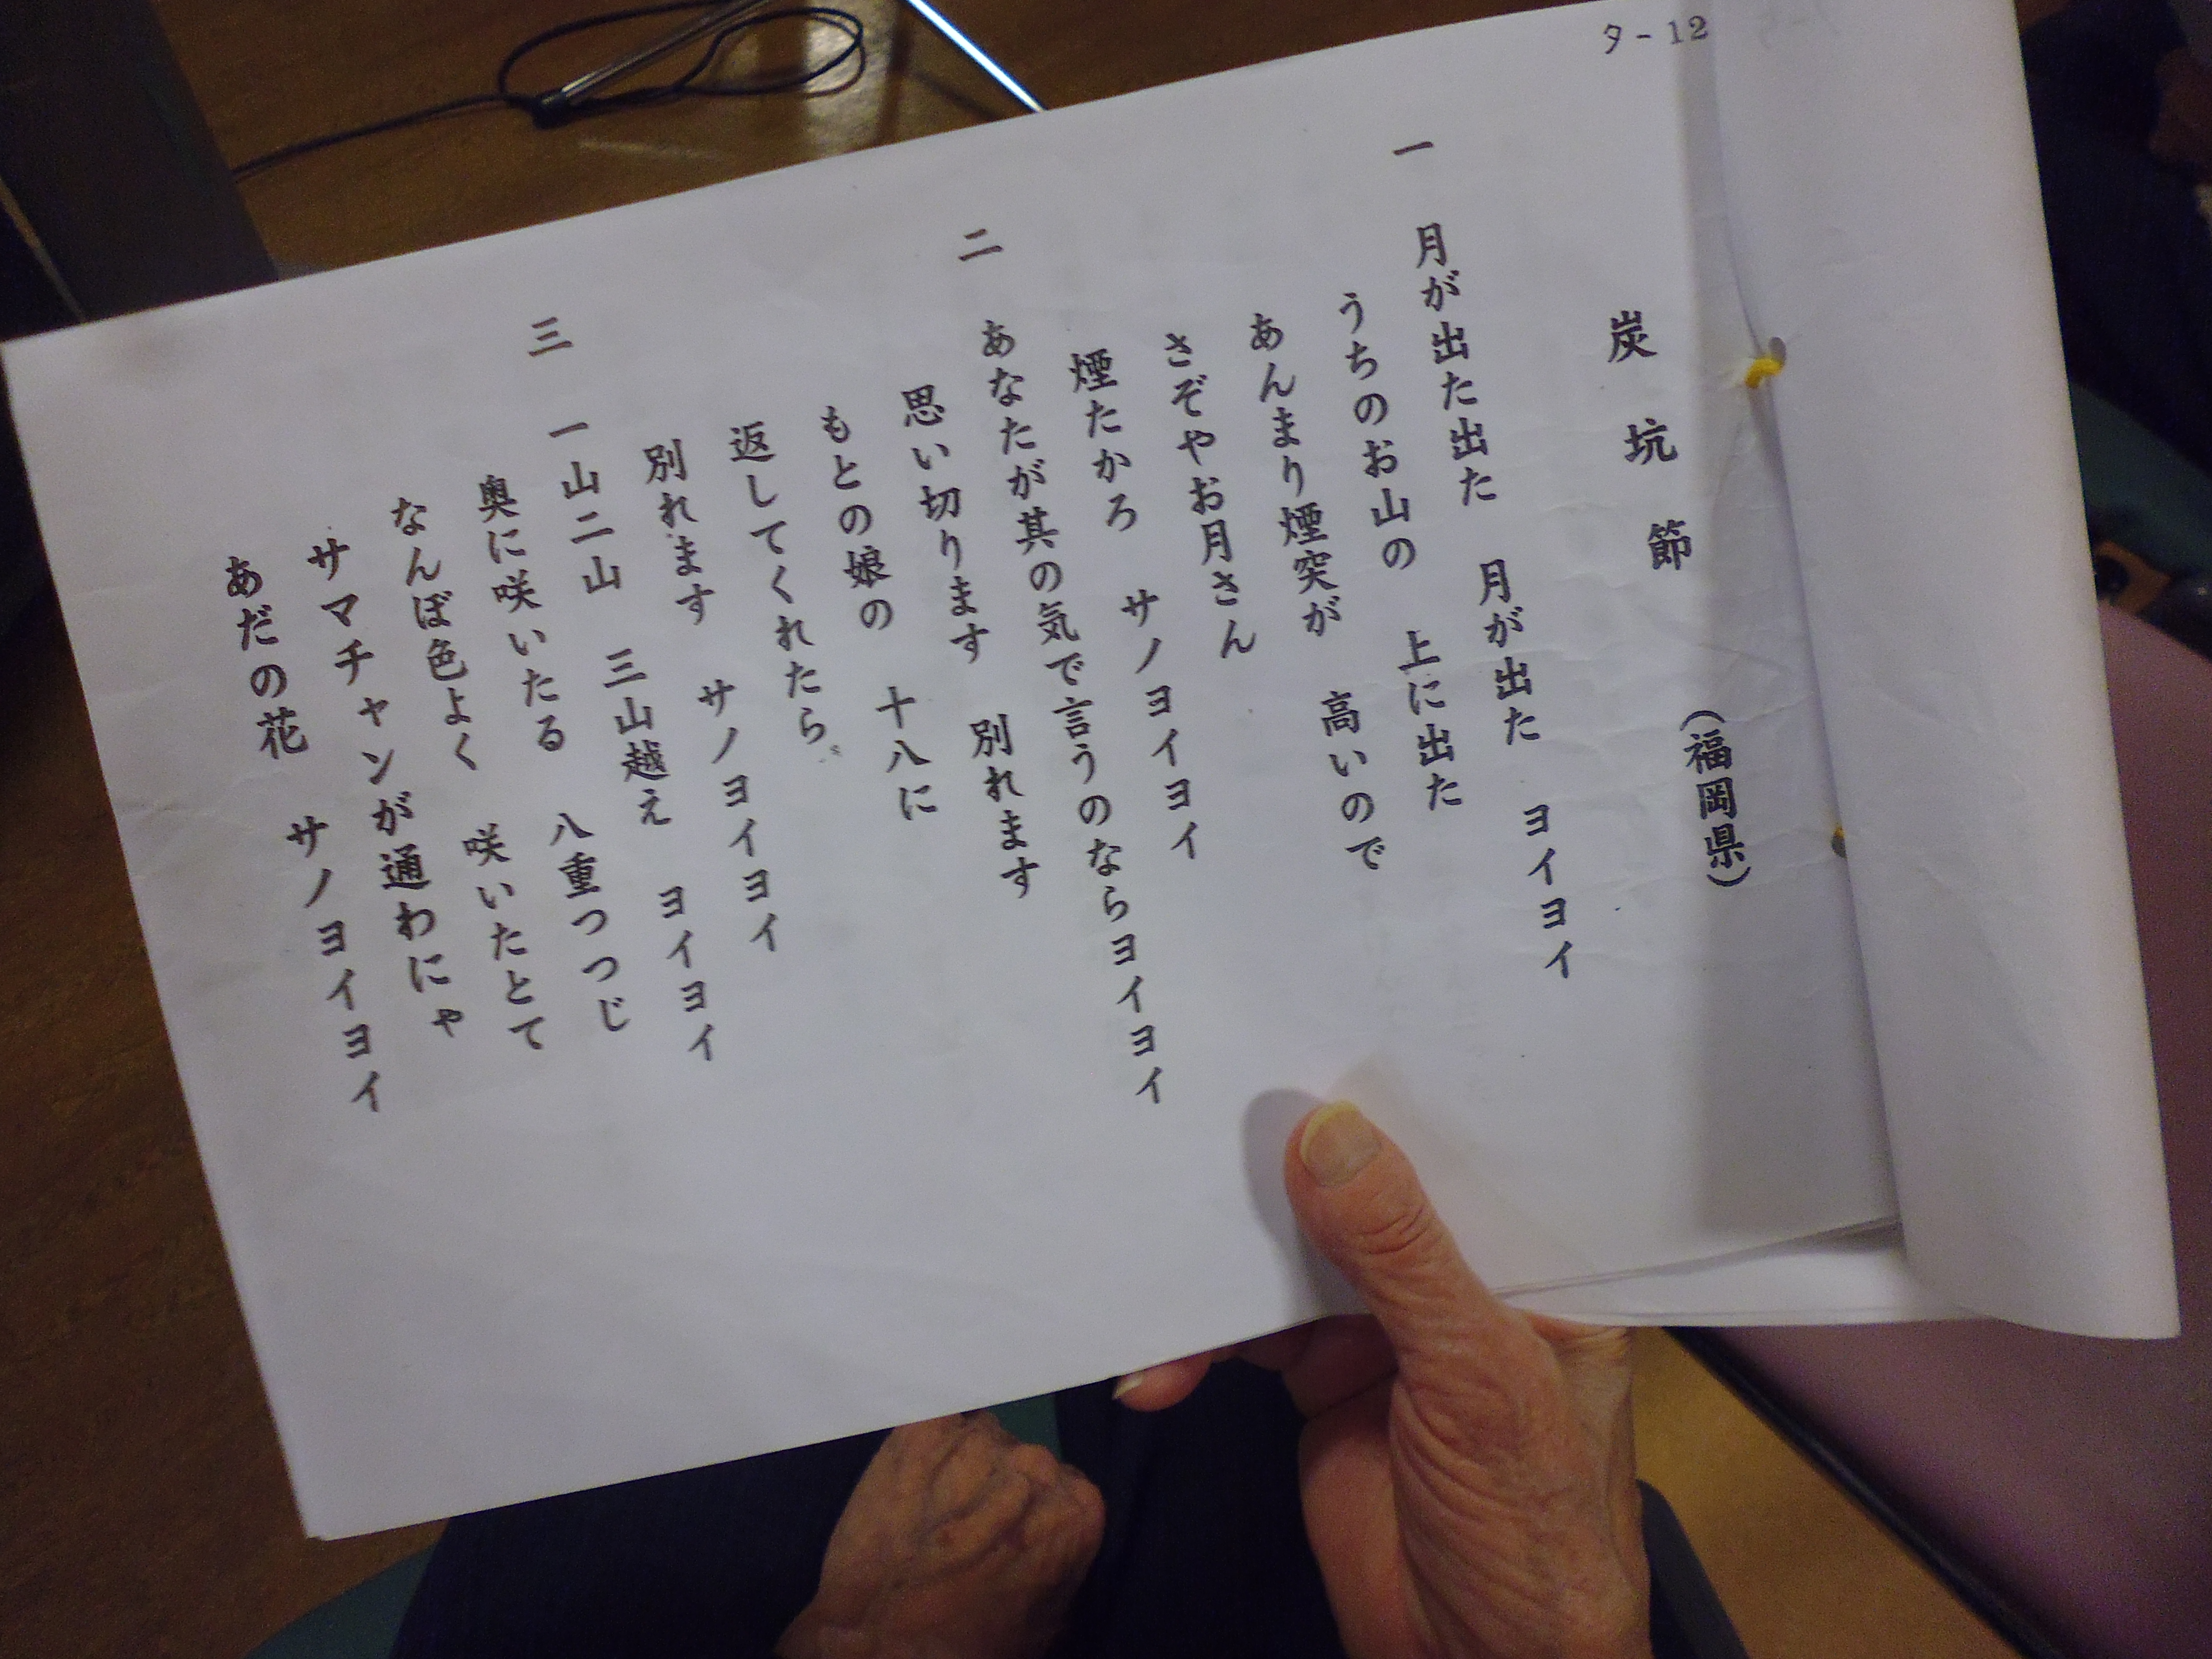 タ-12
炭坑節 (福岡県)
一 月が出た出た 月が出た ヨイヨイ
うちのお山の 上に出た
あんまり煙突が 高いので
さぞやお月さん
煙たかろ サノヨイヨイ
二 あなたが其の気で言うのならヨイヨイ
思い切ります 別れます
もとの娘の 十八に
返してくれたら
別れます サノヨイヨイ
三 一山二山 三山越え ヨイヨイ
奥に咲いたる 八重つつじ
なんぼ色よく 咲いたとて
サマチャンが通わにゃ
あだの花 サノヨイヨイ